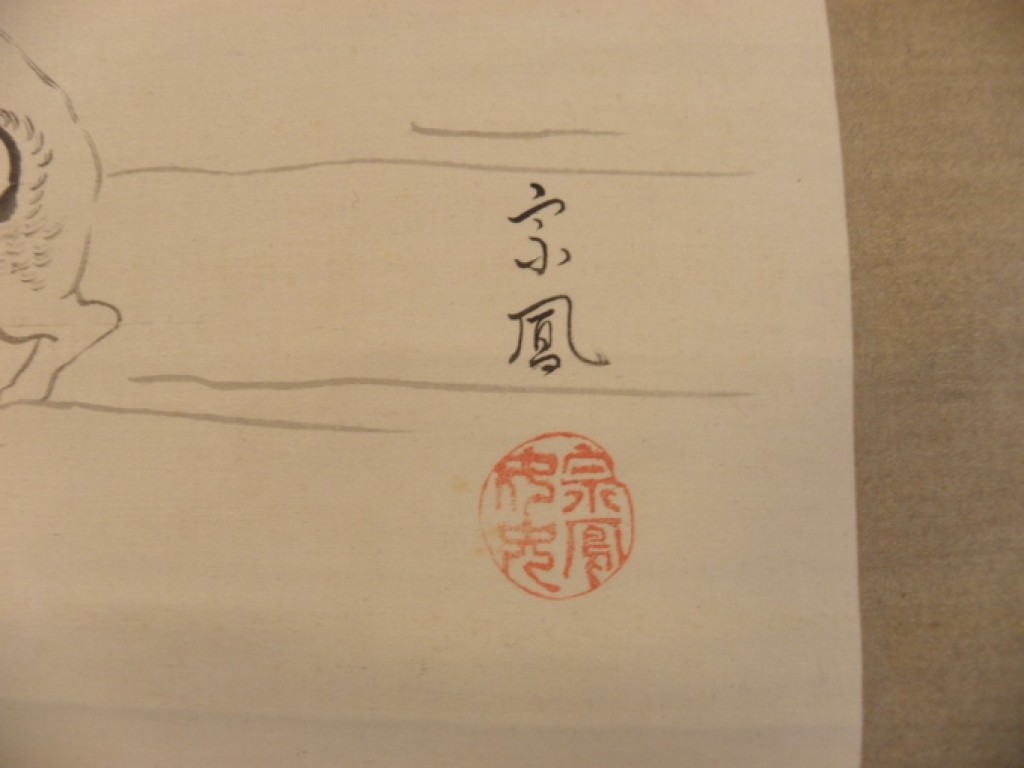 宗鳳
宗鳳